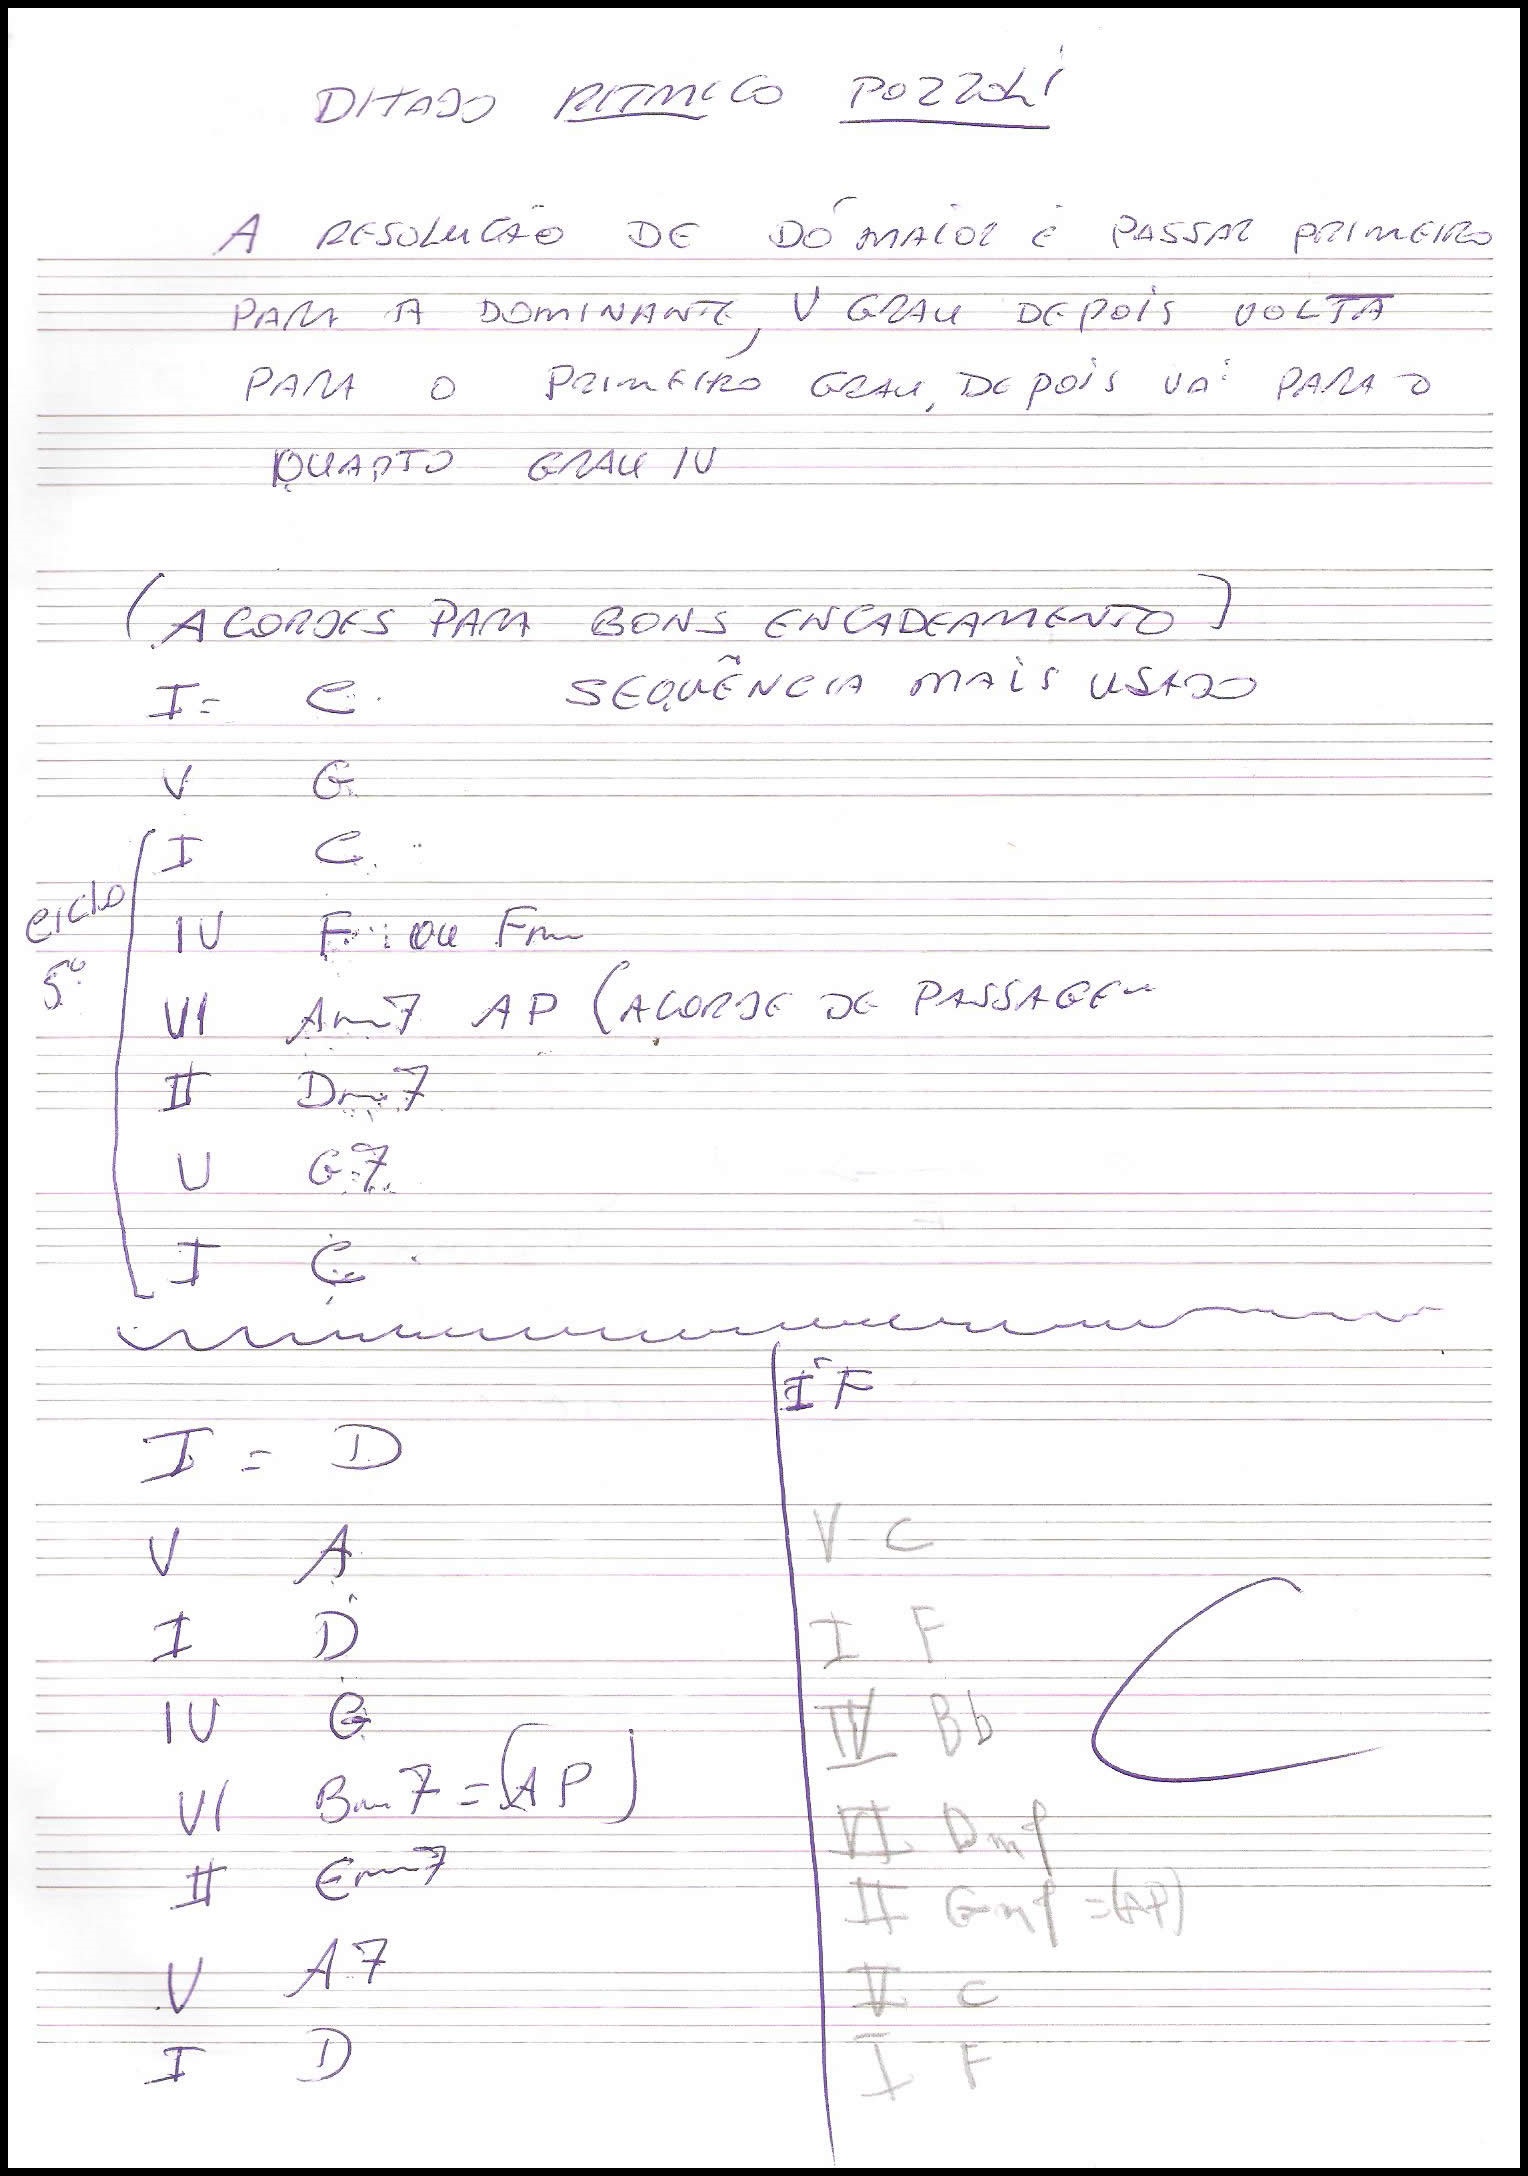 DITADO RITMICO POZZOLI
A RESOLUÇÃO DE DÓ MAIOR É PASSAR PRIMEIRO
PARA A DOMINANTE, V GRAU DEPOIS VOLTA
PARA O PRIMEIRO GRAU, DEPOIS VAI PARA O
QUARTO GRAU IV
(ACORDES PARA BONS ENCADEAMENTO)
I= C SEQUÊNCIA MAIS USADO
V G
I C
ciclo 5º
IV F ou Fm
VI Am7 AP (ACORDE DE PASSAGEM
II Dm7
V G7
I C
I = D
V A
I D
IV G
VI Bm7 = (AP)
II Em7
V A7
I D
I F
V C
I F
IV Bb
VI Dm7
II Gm7 =(AP)
V C
I F
C